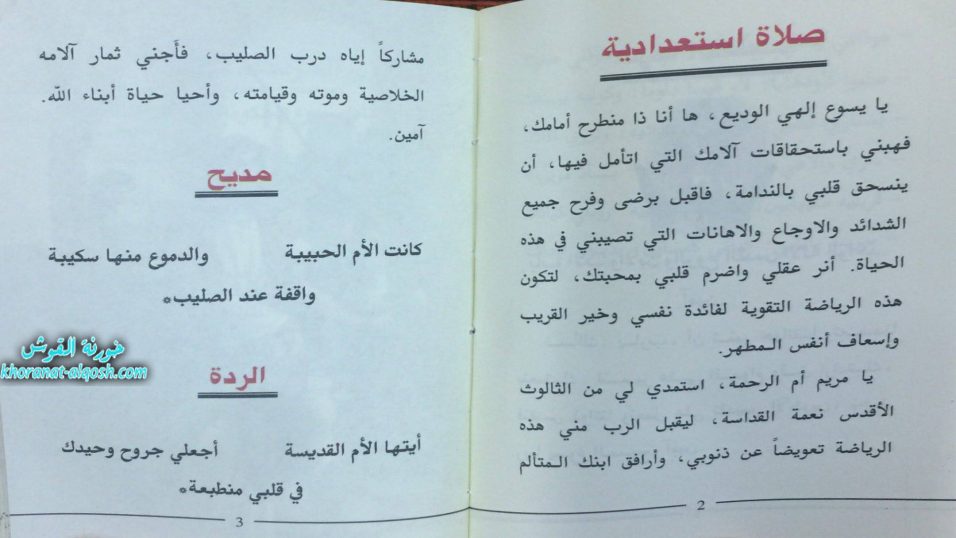 صلاة استعدادية
يا يسوع إلهي الوديع، ها أنا ذا منطرح أمامك،
فهبني باستحقاقات آلامك التي اتأمل فيها، أن
ينسحق قلبي بالندامة، فاقبل برضى وفرح جميع
الشدائد والاوجاع والاهانات التي تصيبني في هذه
الحياة. أنر عقلي واضرم قلبي بمحبتك، لتكون
هذه الرياضة التقوية لفائدة نفسي وخير القريب
وإسعاف أنفس المطهر.
يا مريم أم الرحمة، استمدي لي من الثالوث
الأقدس نعمة القداسة، ليقبل الرب مني هذه
الرياضة تعويضاً عن ذنوبي، وأرافق ابنك المتألم
2
مشاركاً إياه درب الصليب، فأَجني ثمار آلامه
الخلاصية وموته وقيامته، وأحيا حياة أبناء الله.
آمين.
مديح
كانت الأم الحبيبة والدموع منها سكيبة
واقفة عند الصليب*
الردة
أيتها الأم القديسة أجعلي جروح وحيدك
في قلبي منطبعة*
3
خورنة القوش
khoranat-alqosh.com